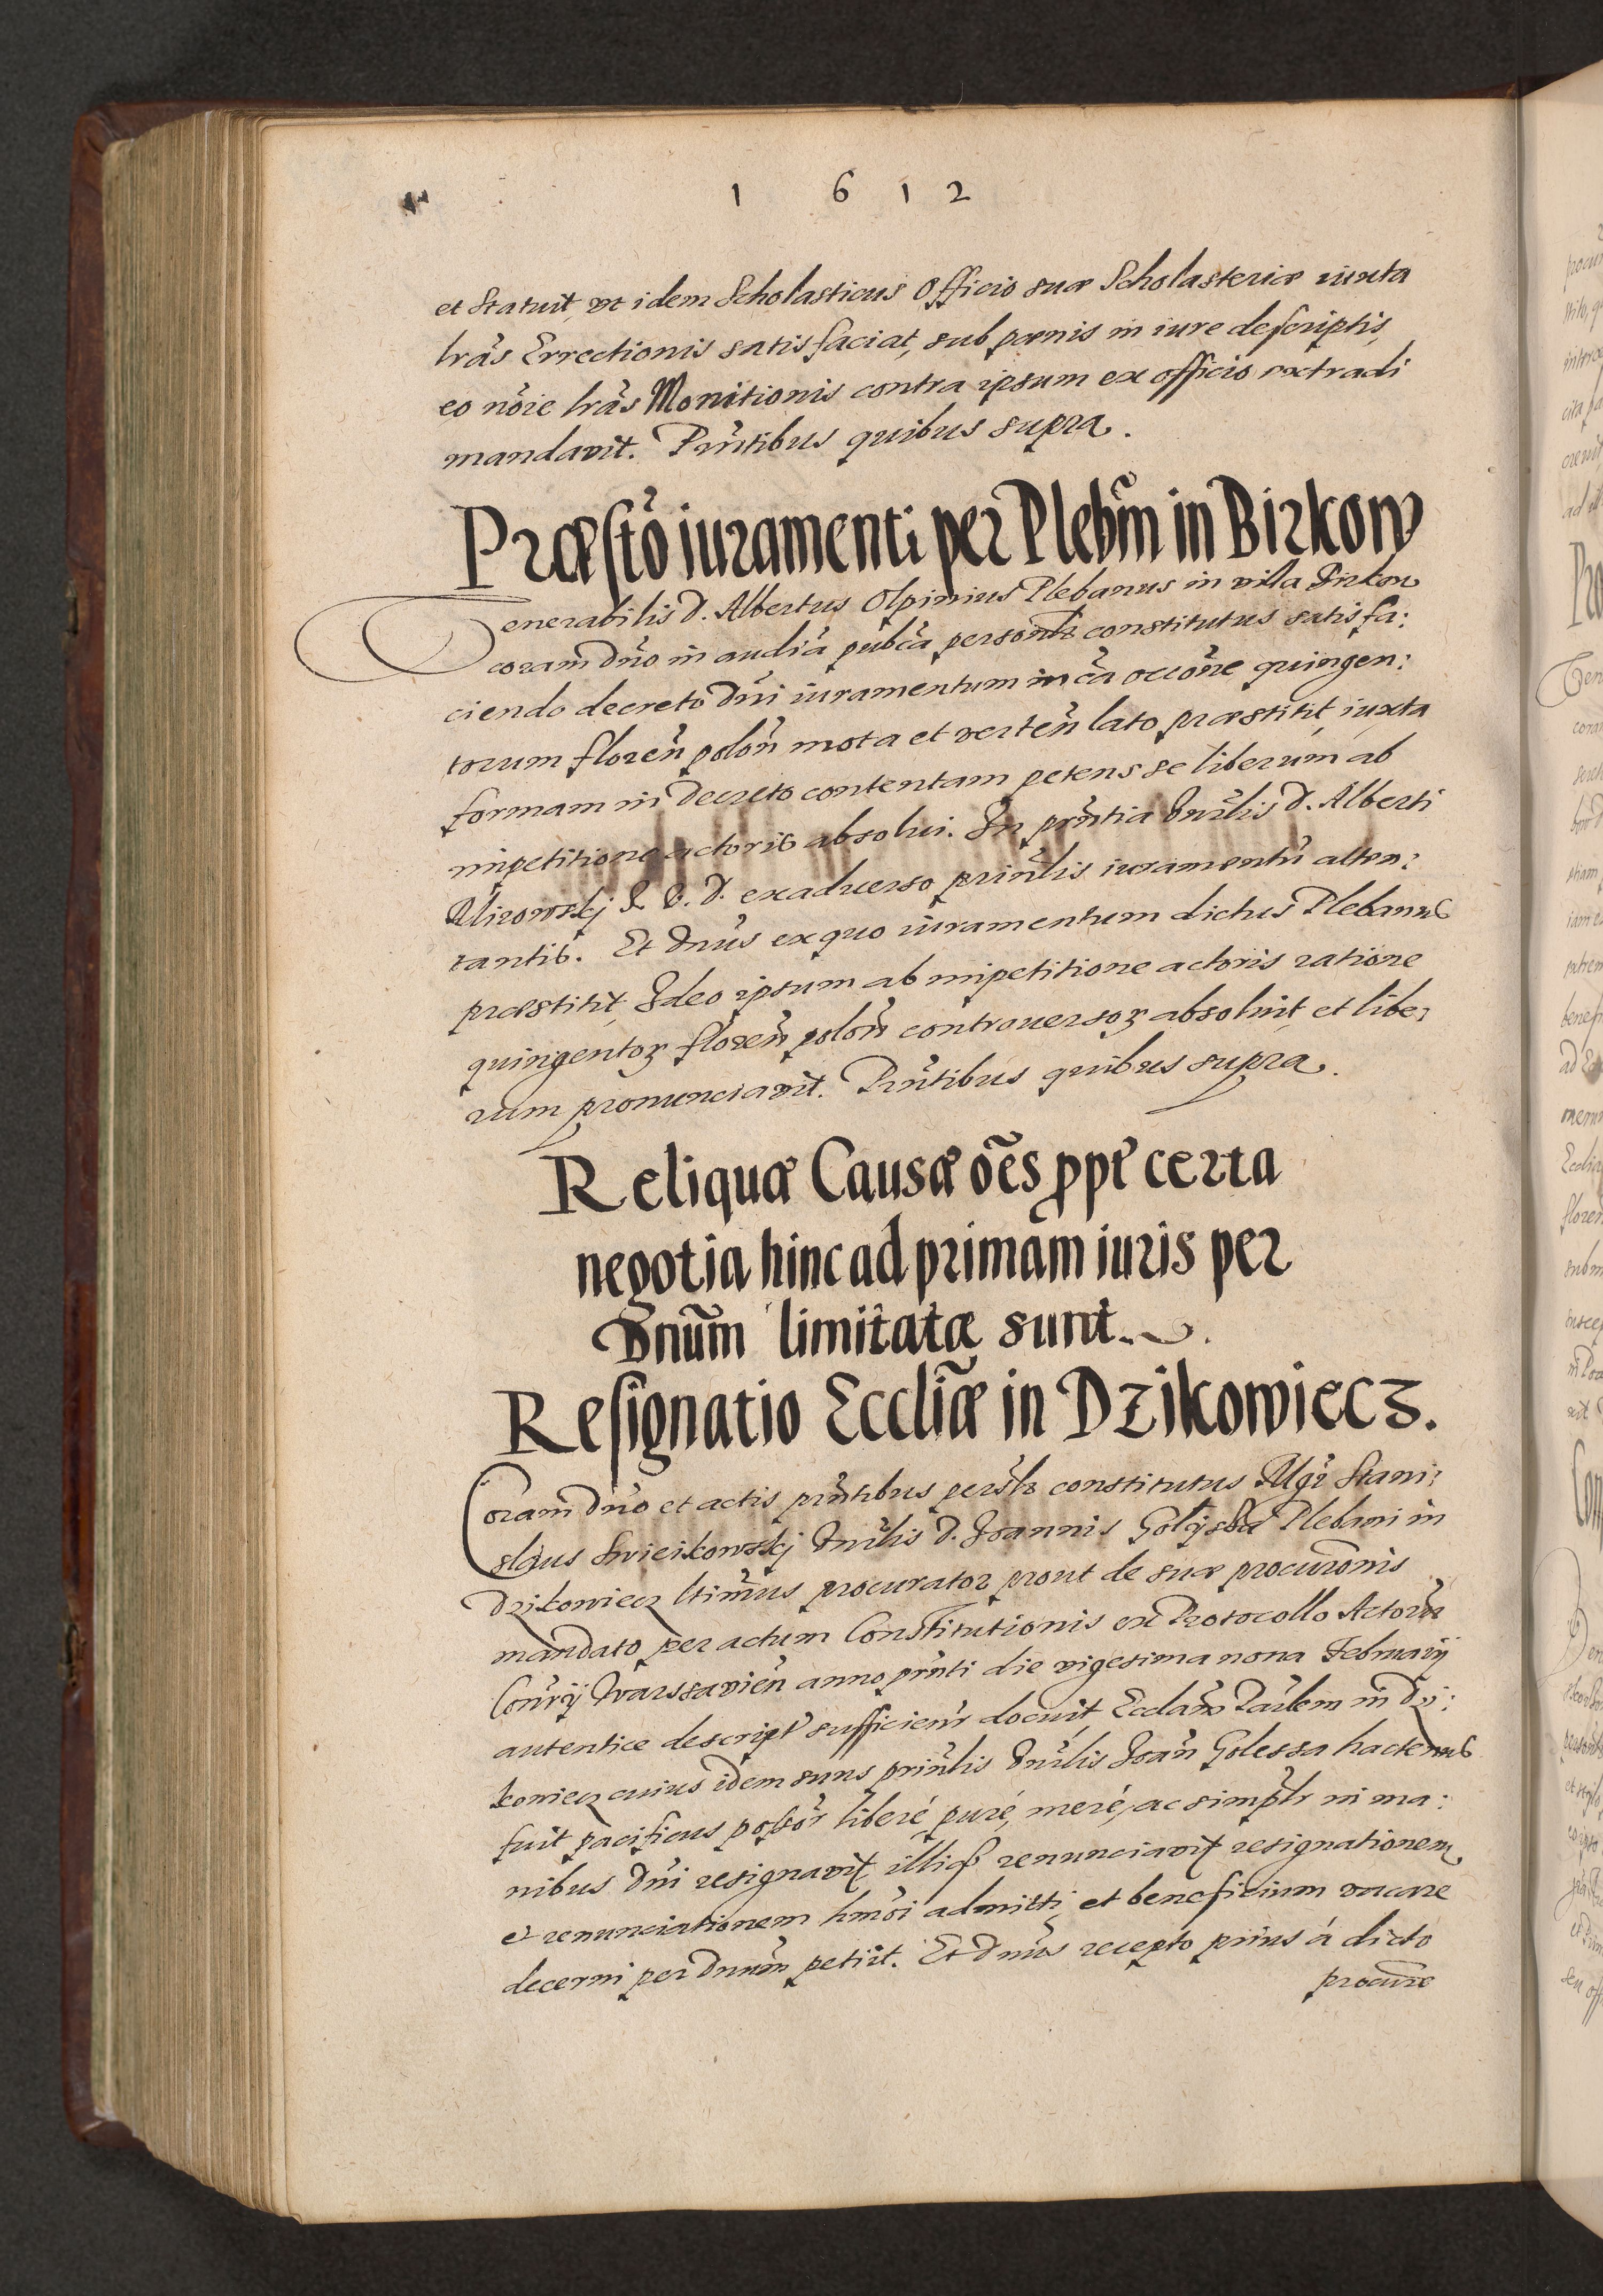 1 6 1 2
et statuit, vt idem Scholasticus Officio suæ Scholasteriæ iuxta
lrãs Errectionis satisfaciat, sub pœnis in iure descriptis,
eo nõie lrãs Monitionis contra ipsum ex officio extradi
mandavit. Pñtibus quibus supra.
Præstõ iuramenti per Plebm̃ in Birkow
Venerabilis D. Albertus Olpinius Plebanus in villa Birkow
coram Dño in audiã pubca personlr constitutus satisfa:
ciendo decreto Dñi iuramentum in cã occõne quingen:
torum floreñ poloñ mota et verteñ lato præstitit, iuxta
formam in Decreto contentam petens se liberum ab
impetitione actoris absolui. In pñtia D. Alberti
Mirowskj exaduerso prinlis iuramentũ atten:
tantis. Et Dnũs ex quo iuramentum dictus Plebanus
præstitit, Ideo ipsum ab impetitione actoris ratione
quingentoꝝ floreñ poloñ controuersoꝝ absoluit, et libe:
rum pronunciavit. Pñtibus quibus supra.
Reliquæ Causæ oẽs ppt certa
negotia hinc ad primam iuris per
Dnũm limitatæ sunt.
Resignatio Eccliæ in Dzikowiecz.
Coram Dño et actis pñtibus persłr constitutus Mgr̃ Stani:
slaus D. Joannis Plebani in
Dzikowiecz ltimus procurator prout de suæ procurõnis
mandato per actum Constitutionis ex Protocollo Actorũ
Consrij Warssavień anno pñti die vigesima nona Februarij
autentice descript sufficienr docuit Ecclam in Dzi:
kowiecz cuius idem suus prinlis Joañ Golessa hactenus
fuit pacificus possor liberé, puré, meré, ac simplr in ma:
nibus Dñi resignavit, illiqꝫ renunciavit, resignationem
et renunciationem hmõi admitti, et beneficium vacare
decerni per Dnũm petiit. Et Dnũs recepto prius á dicto
procurẽ